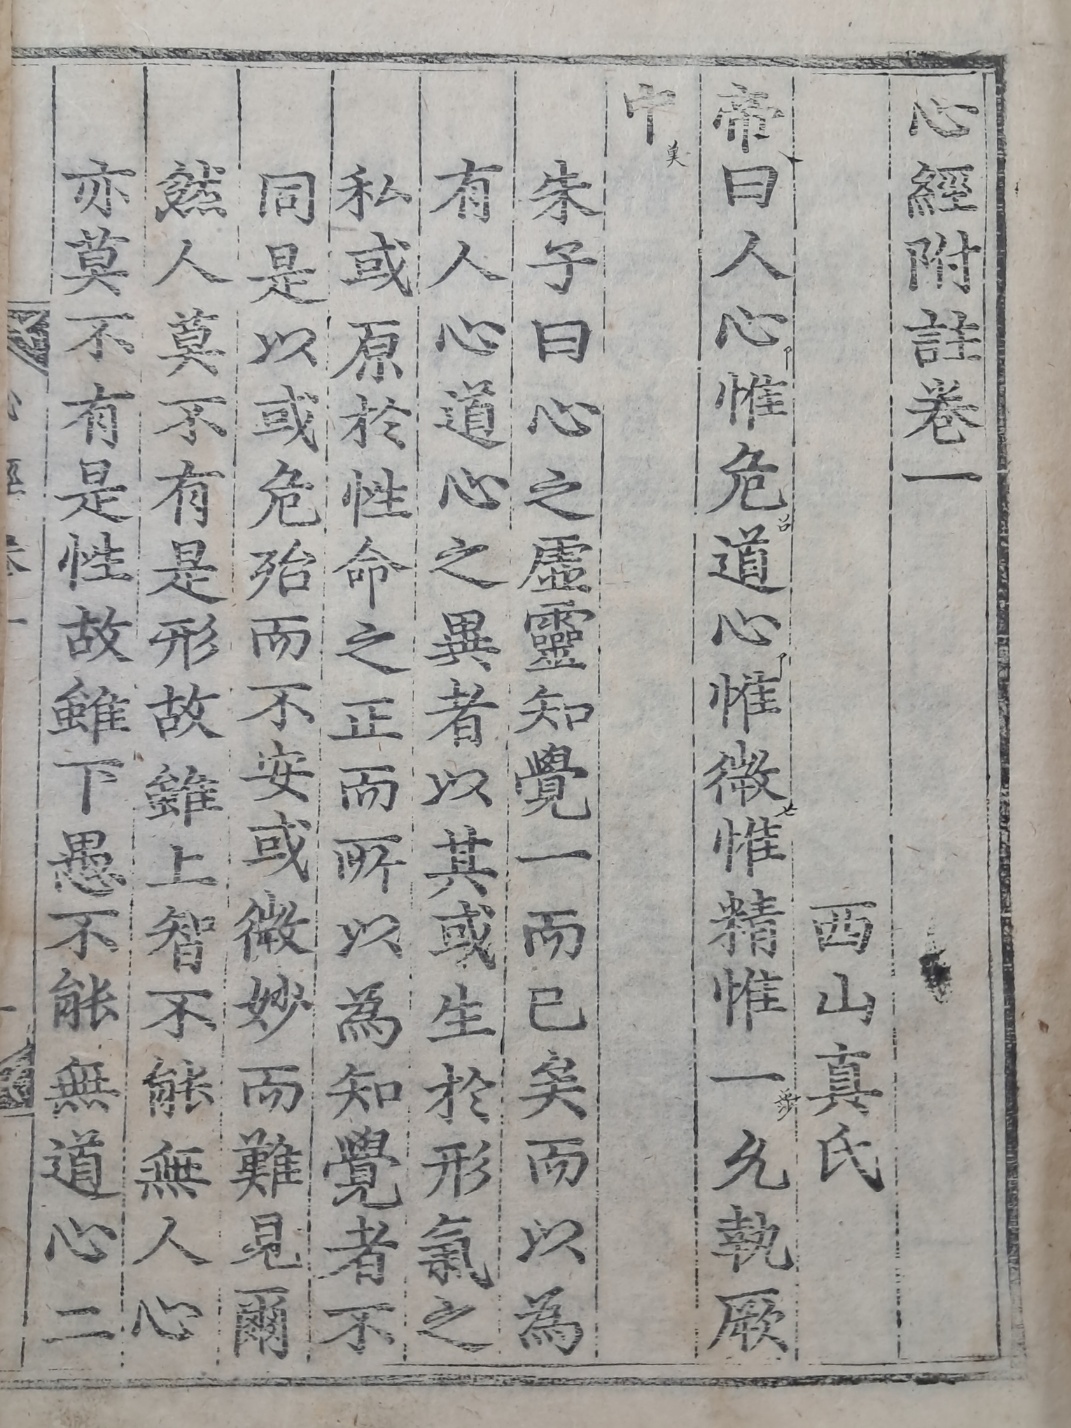 心經附註卷一
西山真氏
帝曰人心惟危道心惟微惟精惟一允執厥
中
朱子曰心之虛靈知覺一而已矣而以為
有人心道心之異者以其或生於形氣之
私或原於性命之正而所以為知覺者不
同是以或危殆而不安或微妙而難見爾
然人莫不有是形故雖上智不能無人心
亦莫不有是性故雖下愚不能無道心二